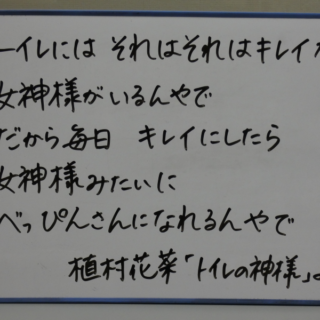 ーイレには それはそれはキレイ
女神様がいるんやで
だから毎日 キレイにしたら
女神様みたいに
べっぴんさんになれるんやで
植村花菜「トイレの神様」